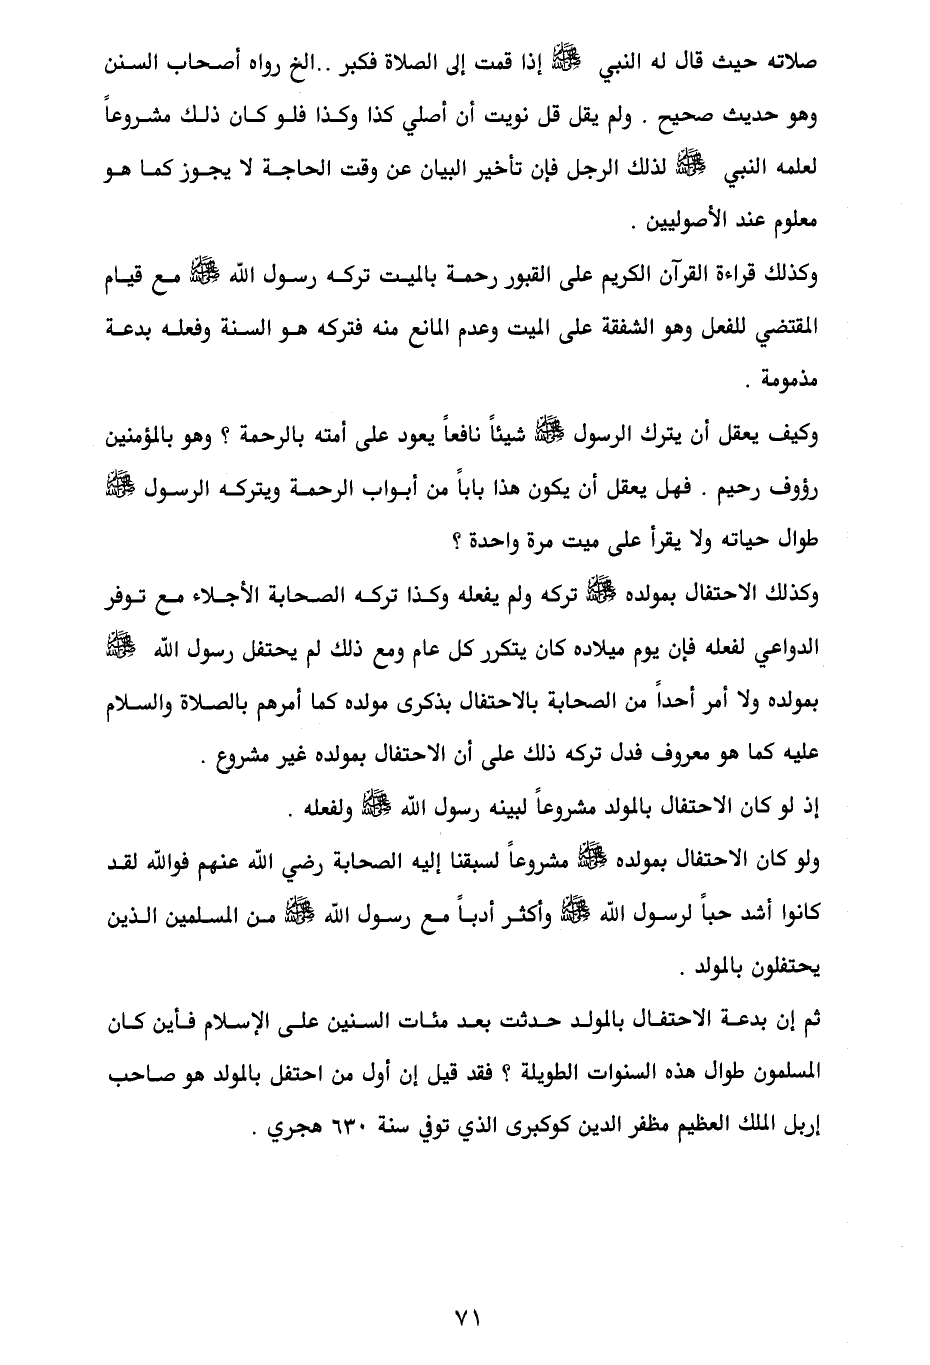 صلاته حيث قال له النبي ﷺ إذا قمت إلى الصلاة فكبر ..الخ رواه أصحاب السنن
وهو حديث صحيح . ولم يقل قل نويت أن أصلي كذا وكذا فلو كان ذلك مشروعاً
لعلمه النبي ﷺ لذلك الرجل فإن تأخير البيان عن وقت الحاجة لا يجوز كما هو
معلوم عند الأصوليين .
وكذلك قراءة القرآن الكريم على القبور رحمة بالميت تركه رسول الله ﷺ مع قيام
المقتضي للفعل وهو الشفقة على الميت وعدم المانع منه فتركه هو السنة وفعله بدعة
مذمومة .
وكيف يعقل أن يترك الرسول ﷺ شيئاً نافعاً يعود على أمته بالرحمة ؟ وهو بالمؤمنين
رؤوف رحيم . فهل يعقل أن يكون هذا باباً من أبواب الرحمة ويتركه الرسول ﷺ
طوال حياته ولا يقرأ على ميت مرة واحدة ؟
وكذلك الاحتفال بمولده ﷺ تركه ولم يفعله وكذا تركه الصحابة الأجلاء مع توفر
الدواعي لفعله فإن يوم ميلاده كان يتكرر كل عام ومع ذلك لم يحتفل رسول الله ﷺ
بمولده ولا أمر أحداً من الصحابة بالاحتفال بذكرى مولده كما أمرهم بالصلاة والسلام
عليه كما هو معروف فدل تركه ذلك على أن الاحتفال بمولده غير مشروع .
إذ لو كان الاحتفال بالمولد مشروعاً لبينه رسول الله ﷺ ولفعله .
ولو كان الاحتفال بمولده ﷺ مشروعاً لسبقنا إليه الصحابة رضي الله عنهم فوالله لقد
كانوا أشد حباً لرسول الله ﷺ وأكثر أدباً مع رسول الله ﷺ من المسلمين الذين
يحتفلون بالمولد .
ثم إن بدعة الاحتفال بالمولد حدثت بعد مئات السنين على الإسلام فأين كان
المسلمون طوال هذه السنوات الطويلة ؟ فقد قيل إن أول من احتفل بالمولد هو صاحب
إربل الملك العظيم مظفر الدين كوكبرى الذي توفي سنة ٦٣٠ هجري .
٧١